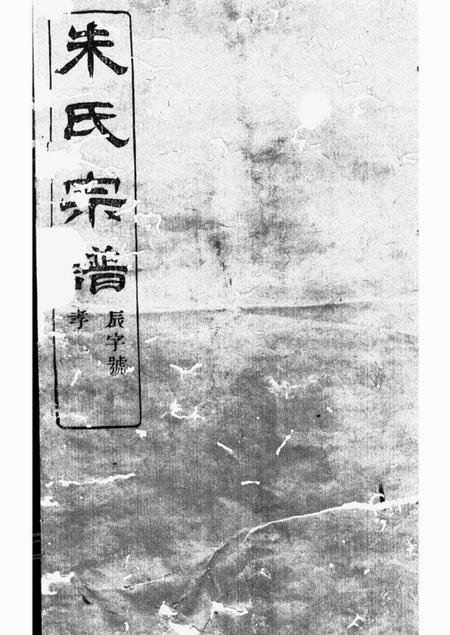 朱氏宗譜
辰字號
孝